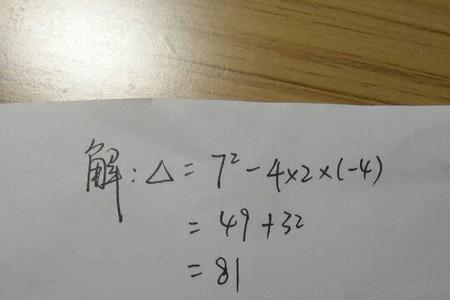 解：△ = 7² - 4×2×(-4)
= 49 + 32
= 81